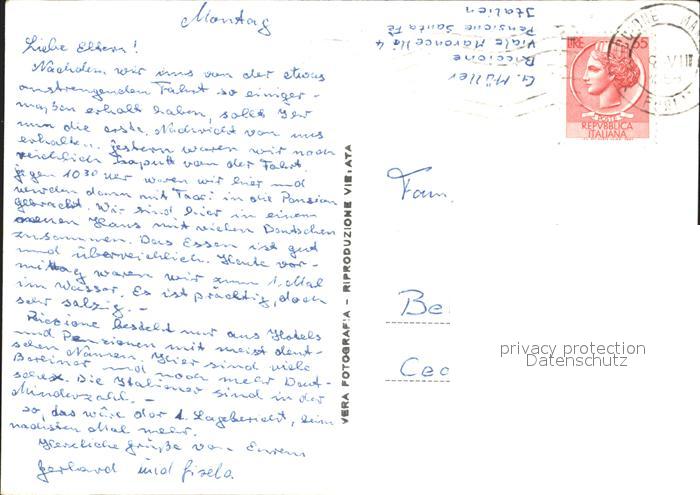 Montag
Liebe Eltern!
Nachdem wir uns von der etwas
anstrengenden Fahrt so einiger-
maßen erholt haben, sollt Ihr
nun die erste Nachricht von uns
erhalten. Gestern waren wir noch
reichlich kaputt von der Fahrt.
gegen 10 30 Uhr waren wir hier und
wurden dann mit Taxi in die Pension
gebracht. Wir sind hier in einem
neuen Haus mit vielen Deutschen
zusammen. Das Essen ist gut
und überreichlich. Heute vor-
mittag waren wir zum 1. Mal
im Wasser. Es ist prächtig, doch
sehr salzig. -
Riccione besteht nur aus Hotels
und Pensionen mit meist deut-
schen Namen. Hier sind viele
Berliner und noch mehr Deut-
sche. Die Italiener sind in der
Minderzahl. -
so, das wäre der 1. Lagebericht, beim
nächsten Mal mehr.
Herzliche Grüße von Eurem
Gerhard und Gisela.
VERA FOTOGRAFIA - RIPRODUZIONE VIETATA
G. Müller
Riccione
Viale Maroncelli 4
Pensione Santa Fè
Italien
LIRE 65
REPVBBLICA
ITALIANA
RICCIONE
Fam.
Be
Cec
privacy protection
Datenschutz